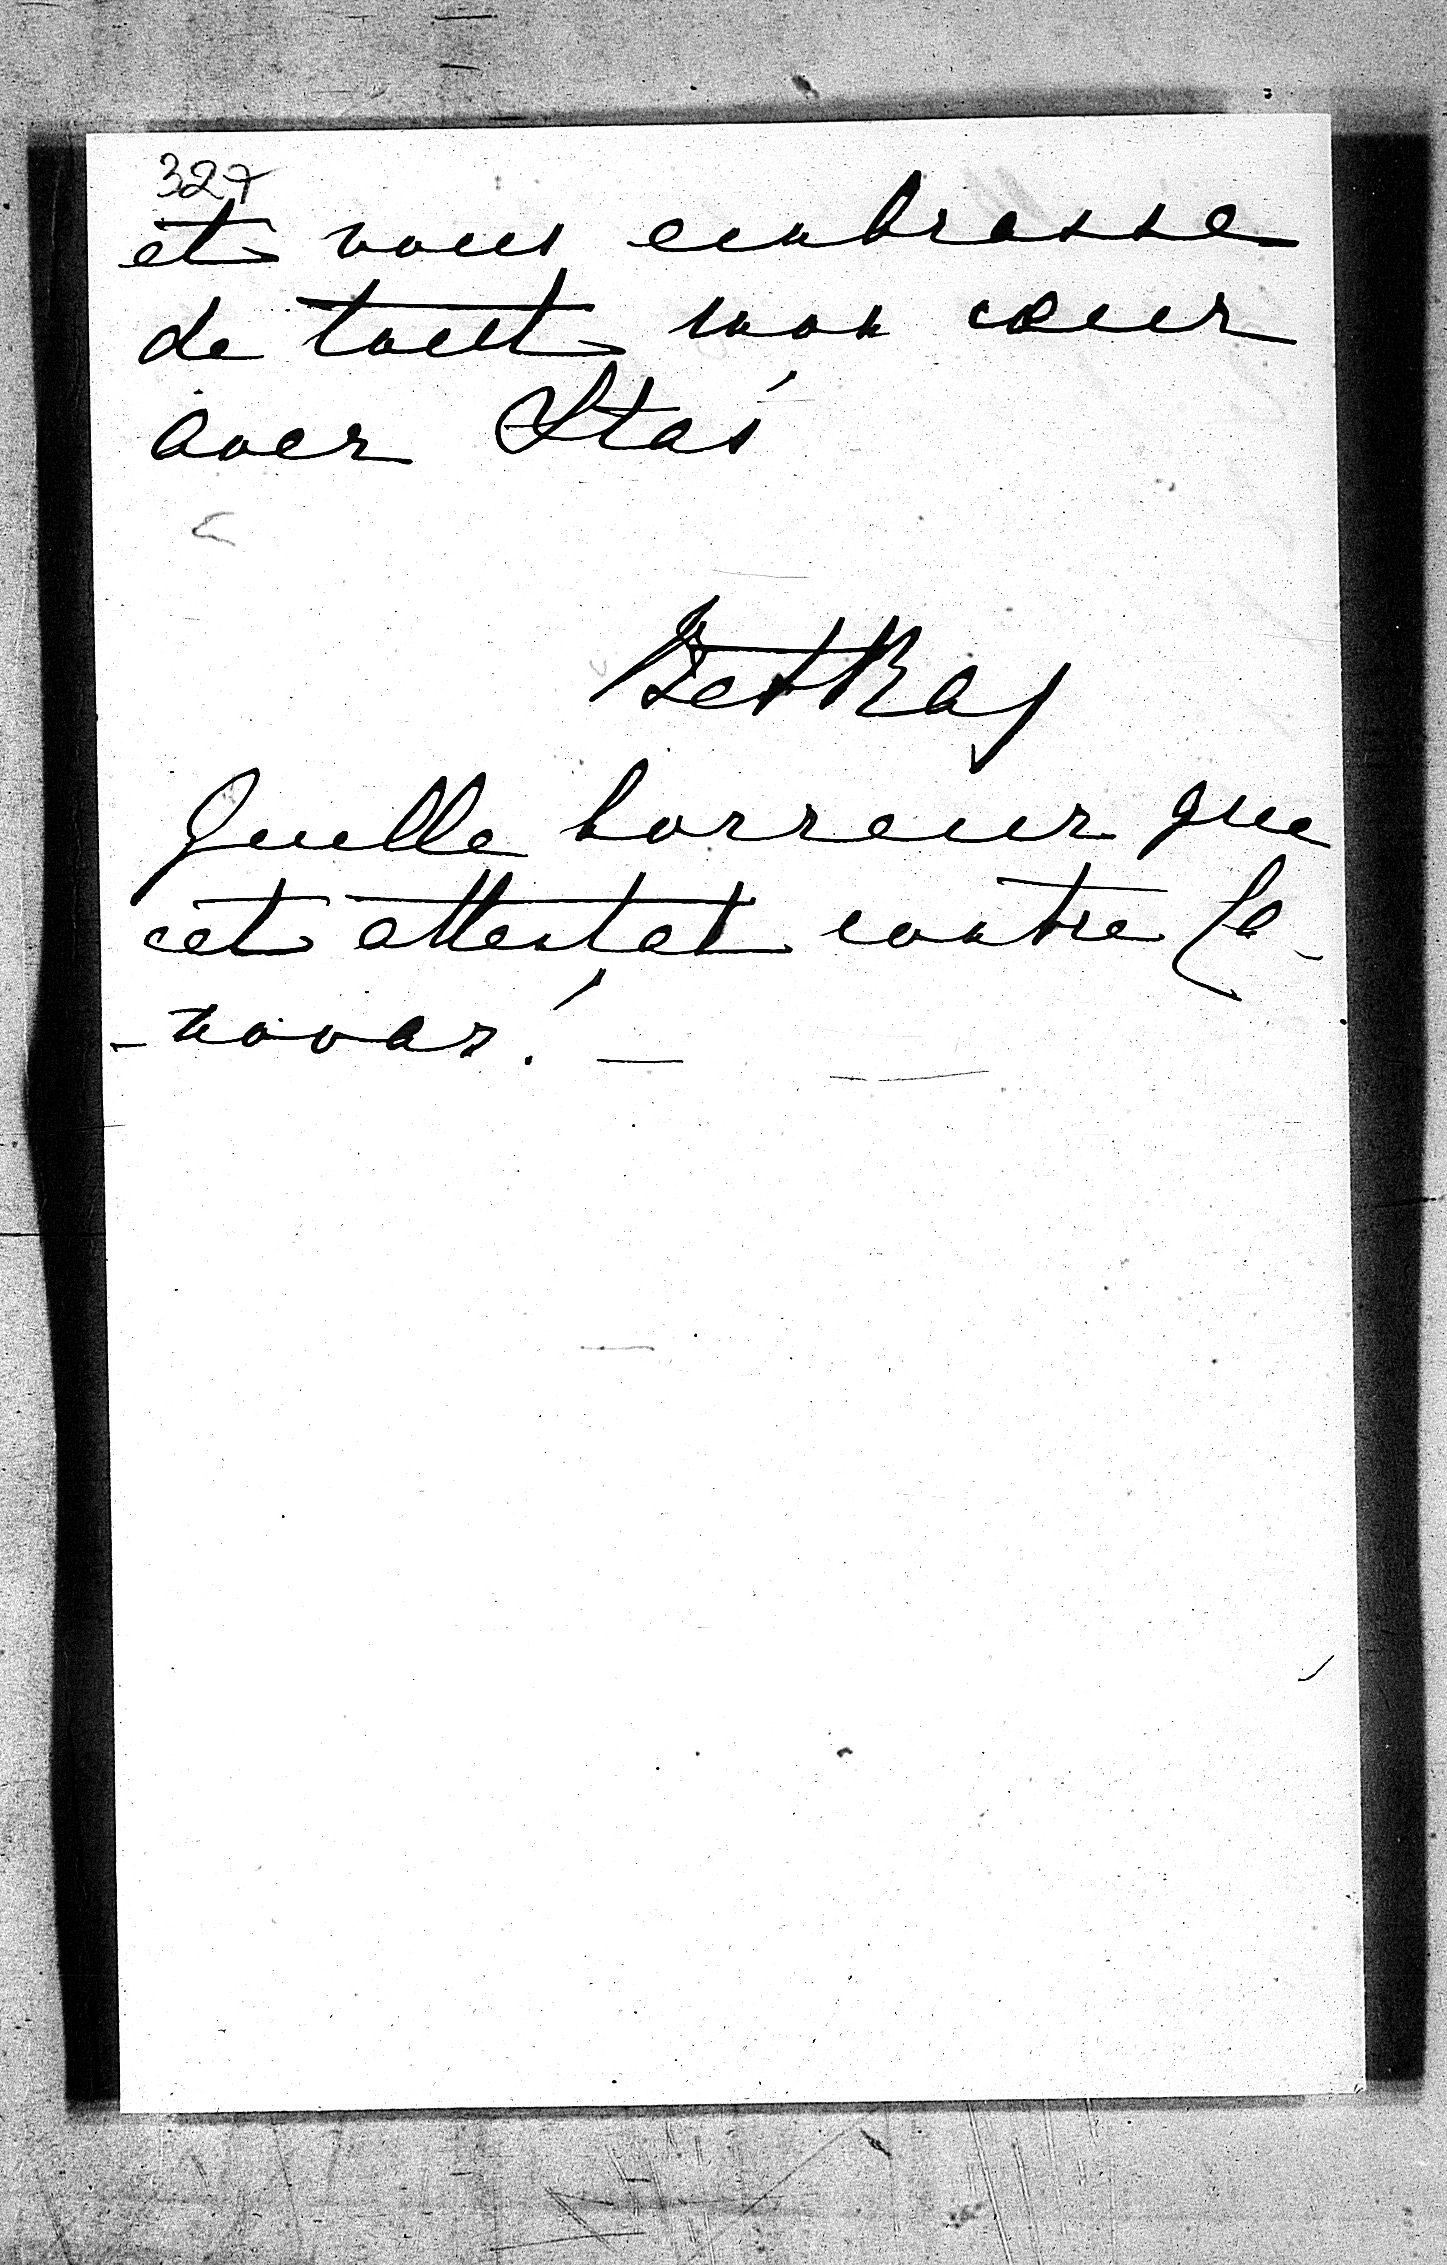 327
et vous embrasse
de tout mon cœur
avec Staś
Quelle horreur que
cet attentat contre Ca-
-novas! —